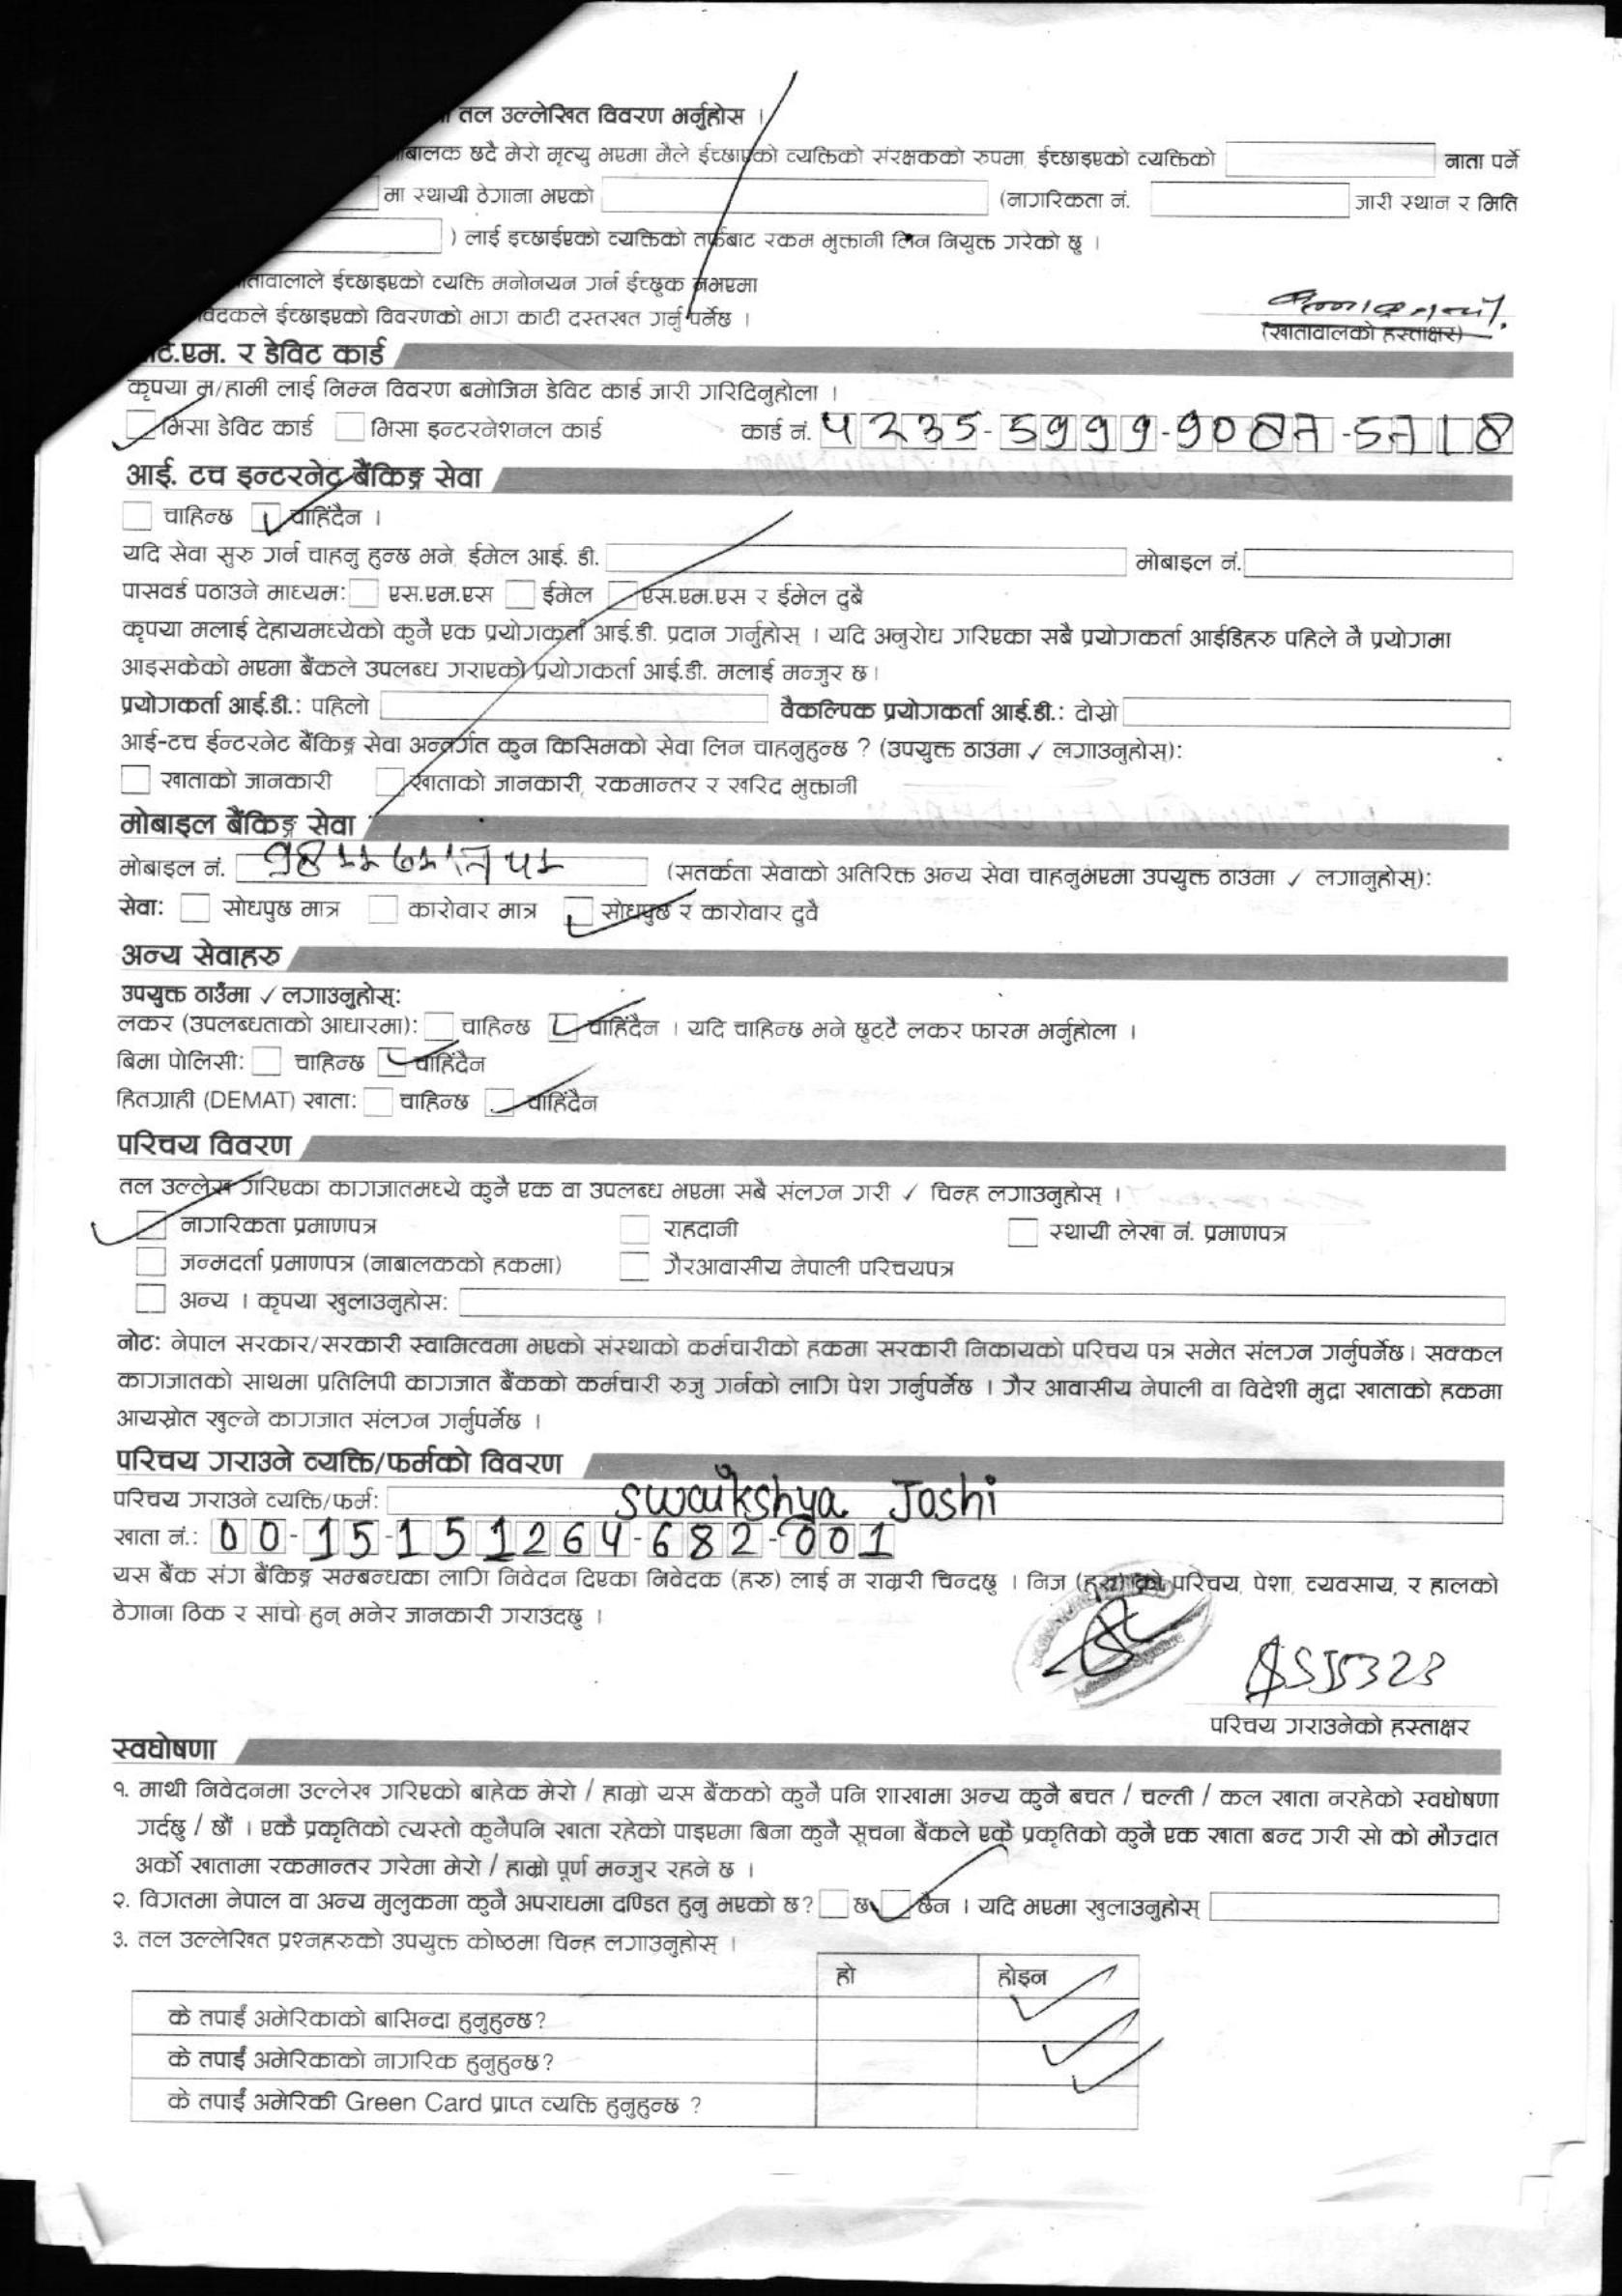 तल उल्लेखित विवरण भर्नुहोस ।
बालक छदै मेरो मृत्यु भएमा मैले ईच्छाएको व्यक्तिको संरक्षकको रुपमा ईच्छाइएको व्यक्तिको नाता पर्ने
मा स्थायी ठेगाना भएको (नागरिकता नं. जारी स्थान र मिति
) लाई इच्छाईएको व्यक्तिको तर्फबाट रकम भुक्तानी लिन नियुक्त गरेको छु ।
ईच्छाइएको व्यक्ति मनोनयन गर्न ईच्छुक नभएमा
ईच्छाइएको विवरणको भाग काटी दस्तखत गर्नु पर्नेछ ।
(खातावालको हस्ताक्षर)
टि.एम. र डेविट कार्ड
कृपया म/हामी लाई निम्न विवरण बमोजिम डेविट कार्ड जारी गरिदिनुहोला ।
भिसा डेविट कार्ड भिसा इन्टरनेशनल कार्ड कार्ड नं.
आई. टच इन्टरनेट बैंकिङ्ग सेवा
चाहिन्छ चाहिंदैन ।
यदि सेवा सुरु गर्न चाहनु हुन्छ भने, ईमेल आई. डी. मोबाइल नं.
पासवर्ड पठाउने माध्यम: एस.एम.एस ईमेल एस.एम.एस र ईमेल दुबै
कृपया मलाई देहायमध्येको कुनै एक प्रयोगकर्ता आई.डी. प्रदान गर्नुहोस् । यदि अनुरोध गरिएका सबै प्रयोगकर्ता आईडिहरु पहिले नै प्रयोगमा
आइसकेको भएमा बैंकले उपलब्ध गराएको प्रयोगकर्ता आई.डी. मलाई मन्जुर छ।
प्रयोगकर्ता आई.डी.: पहिलो वैकल्पिक प्रयोगकर्ता आई.डी.: दोस्रो
आई-टच ईन्टरनेट बैंकिङ्ग सेवा अन्तर्गत कुन किसिमको सेवा लिन चाहनुहुन्छ ? (उपयुक्त ठाउमा ✓ लगाउनुहोस्):
खाताको जानकारी खाताको जानकारी, रकमान्तर र खरिद भुक्तानी
मोबाइल बैंकिङ्ग सेवा
मोबाइल नं. (सतर्कता सेवाको अतिरिक्त अन्य सेवा चाहनुभएमा उपयुक्त ठाउमा ✓ लगानुहोस्):
सेवा: सोधपुछ मात्र कारोवार मात्र सोधपुछ र कारोवार दुवै
अन्य सेवाहरु
उपयुक्त ठाउँमा ✓ लगाउनुहोस्:
लकर (उपलब्धताको आधारमा): चाहिन्छ चाहिंदैन । यदि चाहिन्छ भने छुट्टै लकर फारम भर्नुहोला ।
बिमा पोलिसी: चाहिन्छ चाहिंदैन
हितग्राही (DEMAT) खाता: चाहिन्छ चाहिंदैन
परिचय विवरण
तल उल्लेख गरिएका कागजातमध्ये कुनै एक वा उपलब्ध भएमा सबै संलग्न गरी ✓ चिन्ह लगाउनुहोस् ।
नागरिकता प्रमाणपत्र राहदानी स्थायी लेखा नं. प्रमाणपत्र
जन्मदर्ता प्रमाणपत्र (नाबालकको हकमा) गैरआवासीय नेपाली परिचयपत्र
अन्य । कृपया खुलाउनुहोस:
नोट: नेपाल सरकार/सरकारी स्वामित्वमा भएको संस्थाको कर्मचारीको हकमा सरकारी निकायको परिचय पत्र समेत संलग्न गर्नुपर्नेछ। सक्कल
कागजातको साथमा प्रतिलिपी कागजात बैंकको कर्मचारी रुजु गर्नको लागि पेश गर्नुपर्नेछ । गैर आवासीय नेपाली वा विदेशी मुद्रा खाताको हकमा
आयस्रोत खुल्ने कागजात संलग्न गर्नुपर्नेछ ।
परिचय गराउने व्यक्ति/फर्मको विवरण
परिचय गराउने व्यक्ति/फर्म: Swaikshya Joshi
खाता नं.: 00-15-151264-682-001
यस बैंक संग बैंकिङ्ग सम्बन्धका लागि निवेदन दिएका निवेदक (हरु) लाई म राम्ररी चिन्दछु । निज (हरु) को परिचय, पेशा, व्यवसाय, र हालको
ठेगाना ठिक र सांचो हुन् भनेर जानकारी गराउदछु ।
परिचय गराउनेको हस्ताक्षर
स्वघोषणा
१. माथी निवेदनमा उल्लेख गरिएको बाहेक मेरो / हाम्रो यस बैंकको कुनै पनि शाखामा अन्य कुनै बचत / चल्ती / कल खाता नरहेको स्वघोषणा
गर्दछु / छौं । एकै प्रकृतिको त्यस्तो कुनैपनि खाता रहेको पाइएमा बिना कुनै सूचना बैंकले एकै प्रकृतिको कुनै एक खाता बन्द गरी सो को मौज्दात
अर्को खातामा रकमान्तर गरेमा मेरो / हाम्रो पूर्ण मन्जुर रहने छ ।
२. विगतमा नेपाल वा अन्य मुलुकमा कुनै अपराधमा दण्डित हुनु भएको छ? छ छैन । यदि भएमा खुलाउनुहोस्
३. तल उल्लेखित प्रश्नहरुको उपयुक्त कोष्ठमा चिन्ह लगाउनुहोस् ।
हो होइन
के तपाईं अमेरिकाको बासिन्दा हुनुहुन्छ?
के तपाईं अमेरिकाको नागरिक हुनुहुन्छ?
के तपाईं अमेरिकी Green Card प्राप्त व्यक्ति हुनुहुन्छ ?